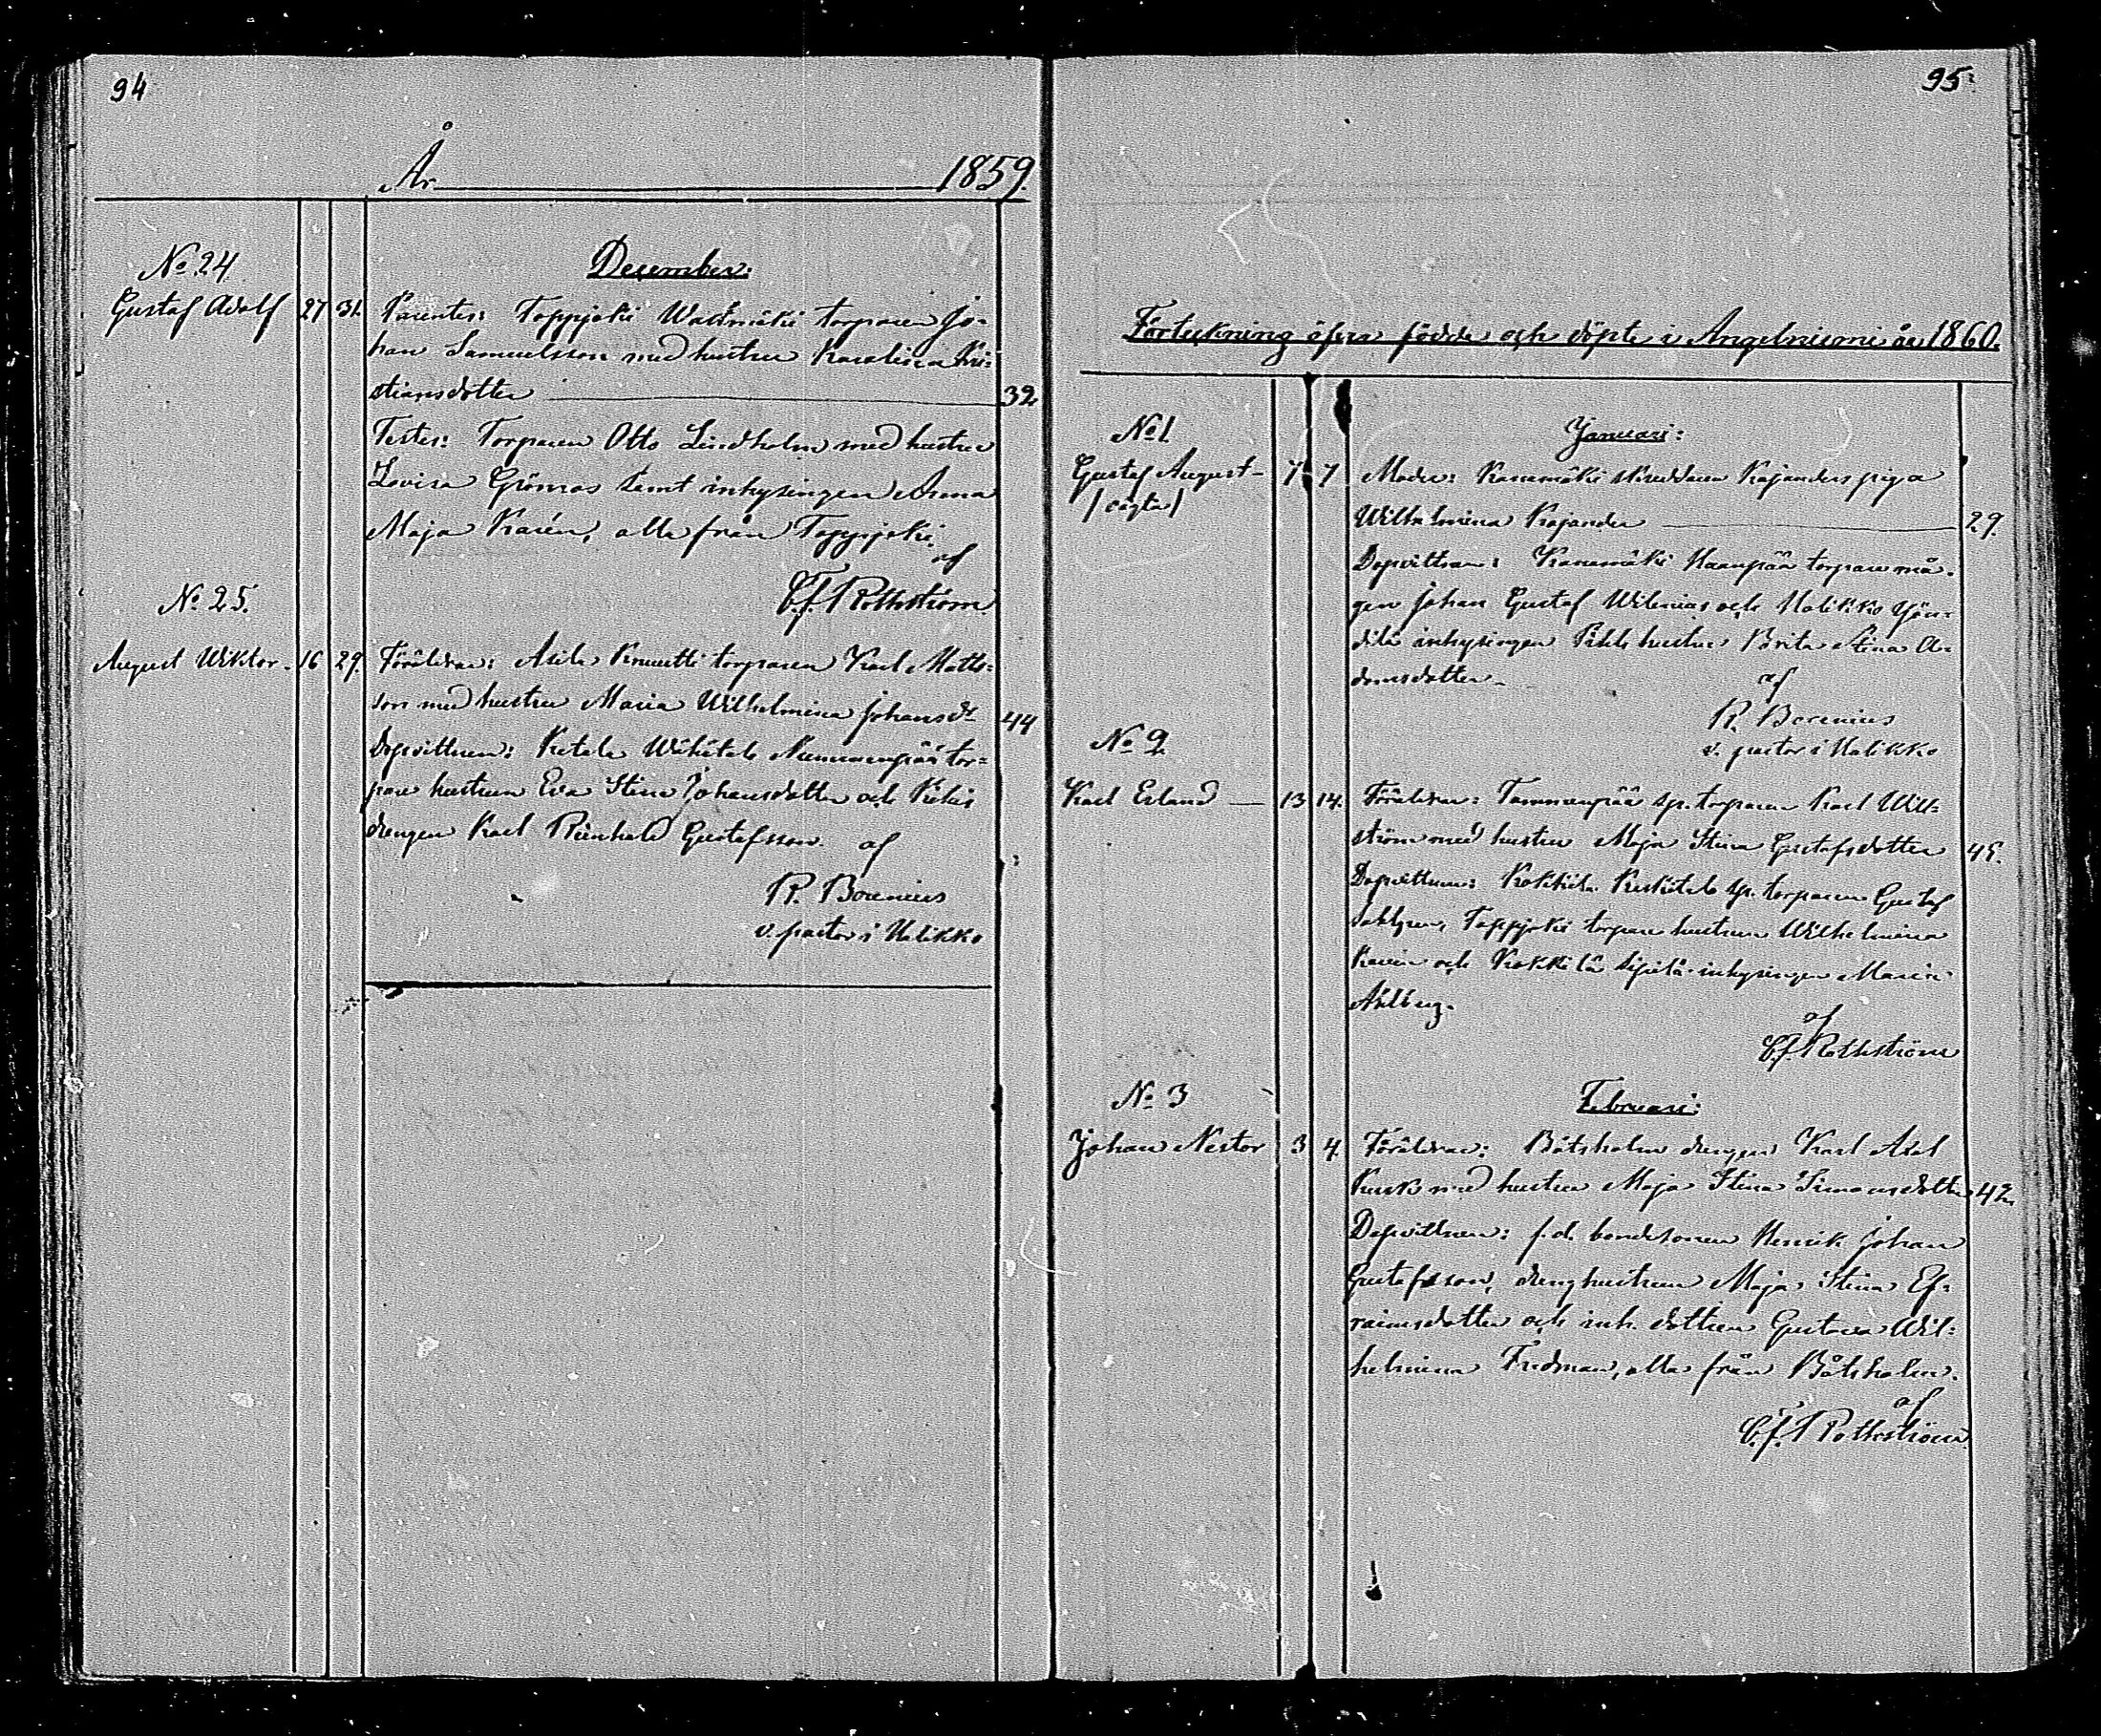 94
År 1859.
December:
No 24
Gustaf Adolf 27 31. Parentes: Toppjoki Wattmäki torparen Jo-
han Samuelsson med hustru Karolina Kri-
stiansdotter 32.
Testes: Torparen Otto Lindholm med hustru
Lovisa Grönros samt inhysingen Anna
Maja Karén, alla från Toppjoki.
af
C.f. Rothström
No 25.
August Wiktor - 16 29. Föräldrar: Asila Knuutti torparen Karl Matts-
son med hustru Maria Wilhelmina Johansdr 44
Dopvittnen: Ketala Nummenpää tor-
pare hustrun Eva Stina Johansdotter och
drengen Karl Reinhold Gustafsson. af
R. Borenius
v. pastor i Halikko
95.
Förteckning öfver födde och döpte i Angelniemi år 1860.
Januari:
No 1.
Gustaf August - 7 7 Moder: Kanamäki skräddaren Kajanders piga
/oägta/
Wilhelmina Kajander 29.
Dopvittnen: Kanamäki Haanpää torpare må-
gen Johan Gustaf Wilenius och Halikko Yön-
dilä inhysingen hustru Brita Stina A-
damsdotter. af
R. Borenius
v. pastor i Halikko
No 2
Karl Erland 13 14. Föräldrar: Tammenpää sp. torparen Karl Wik-
ström med hustru Maja Stina Gustafsdotter 45.
Dopvittnen: Kokkila sp. torparen Gustaf
Toppjoki torpare hustrun Wilhelmina
och Kokkila Sipilä inhysingen Maria
Ahlberg.
af
C.f. Rothström
Februari:
No 3
Johan Nestor 3 4. Föräldrar: Båtsholm drengen Karl Axel
Kusk med hustru Maja Stina Simonsdotter 42.
Dopvittnen: f.d. bondsonen Henrik Johan
Gustafsson, drenghustrun Maja Stina Ef-
raimsdotter och inh. dottren Gustava Wil-
helmina Fredman, alla från Båtsholm.
af
C.f. Rothström